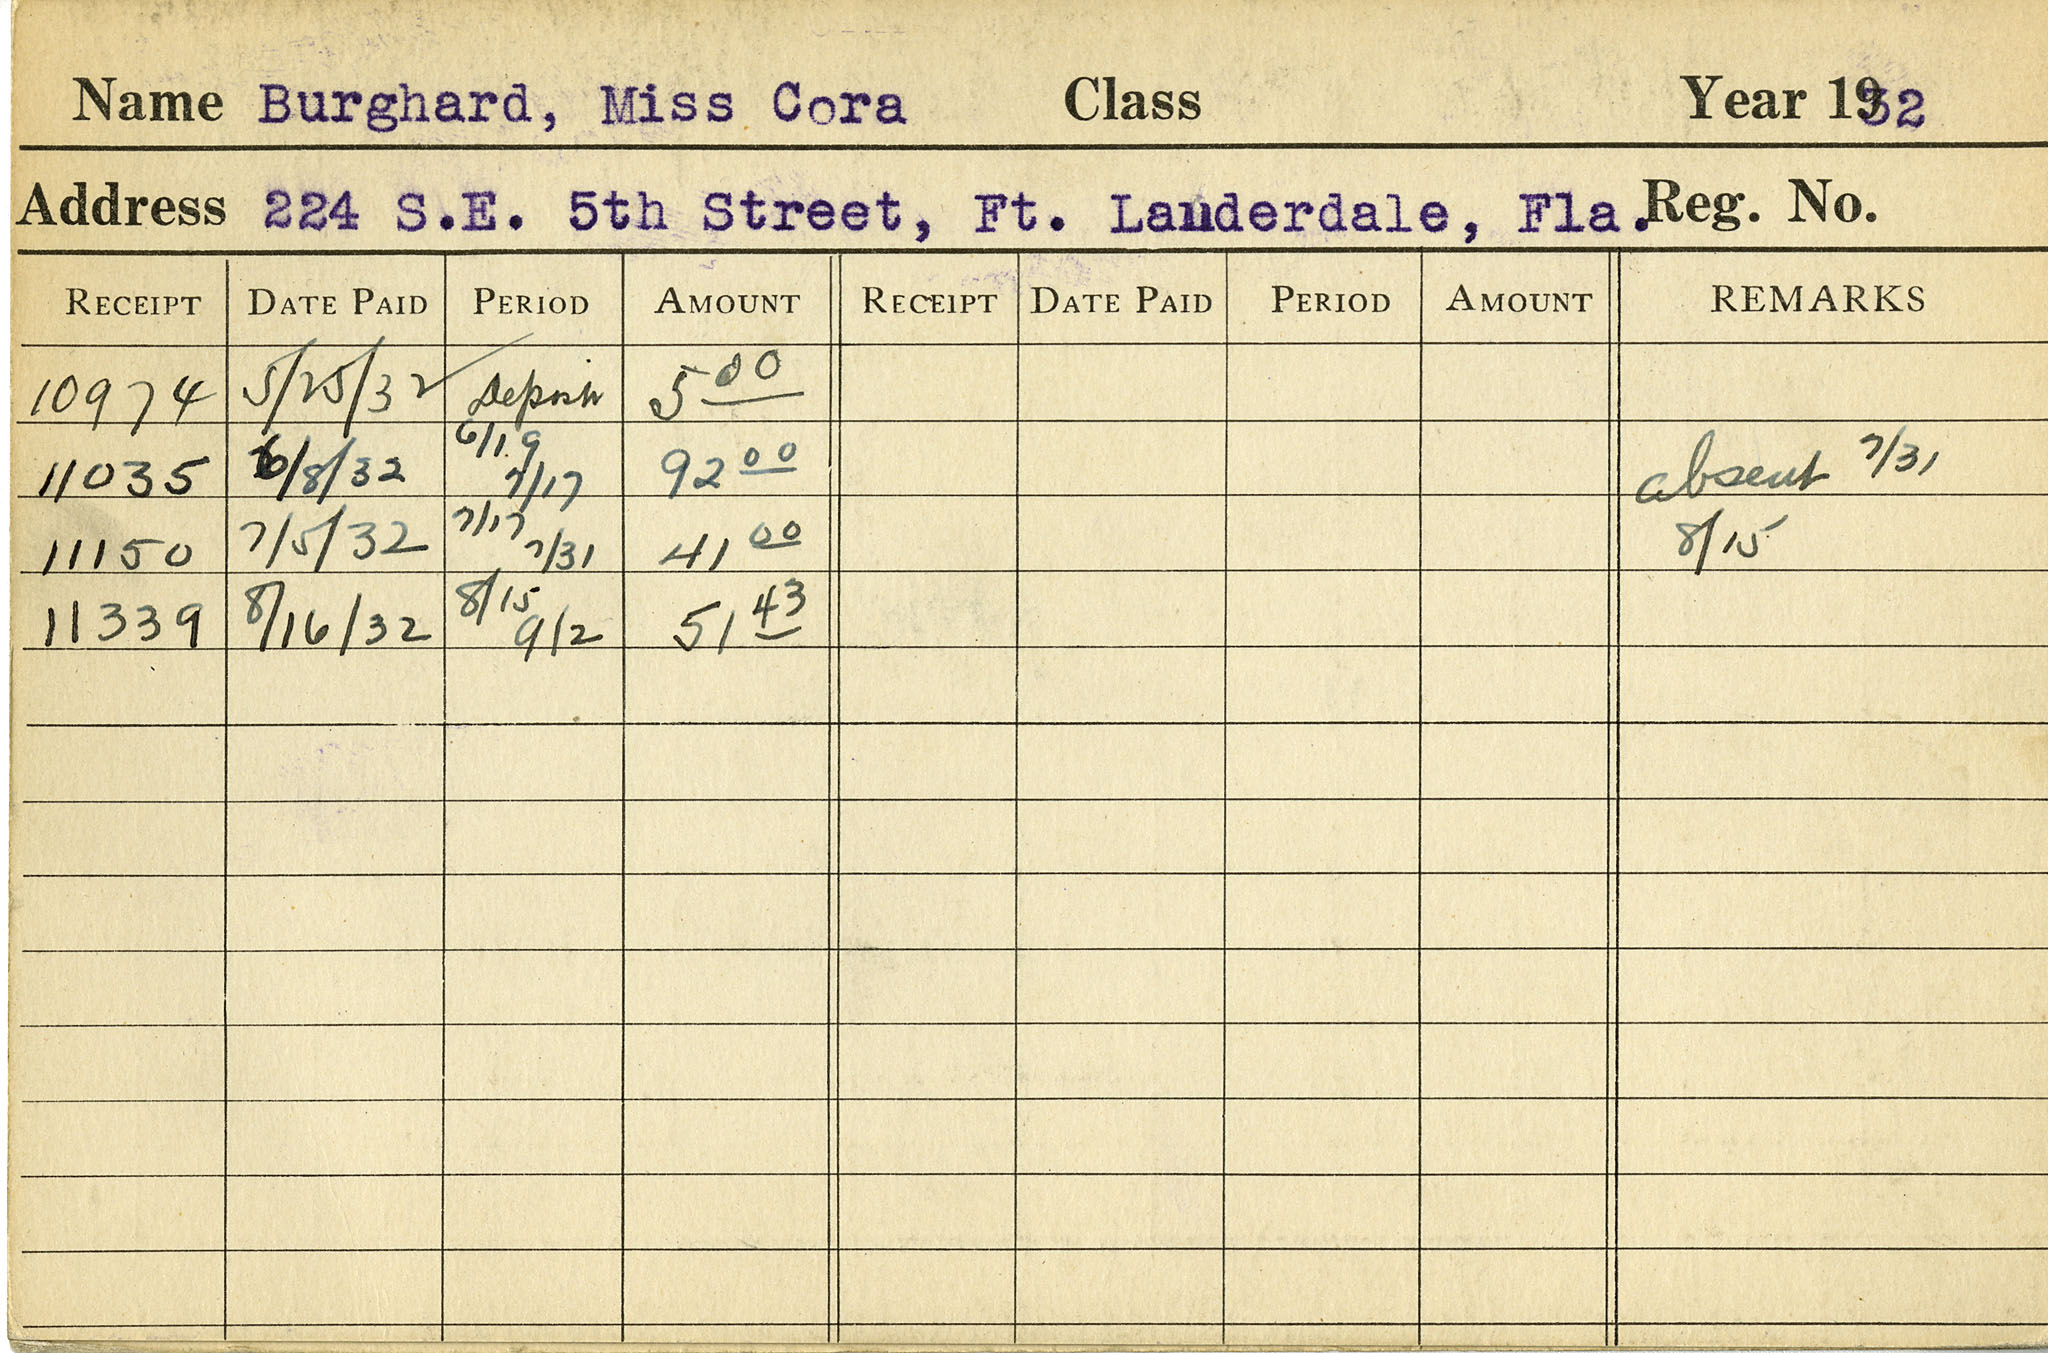 Name Burghard, Miss Cora Class Year 1932
Address 224 S.E. 5th Street, Ft. Lauderdale, Fla. Reg. No.
RECEIPT DATE PAID PERIOD AMOUNT RECEIPT DATE PAID PERIOD AMOUNT REMARKS
10974 5/25/32 ✓ Deposit 5 00
11035 6/8/32 6/19 7/17 92 00 absent 7/31
11150 7/5/32 7/17 7/31 41 00 8/15
11339 8/16/32 8/15 9/2 51 43